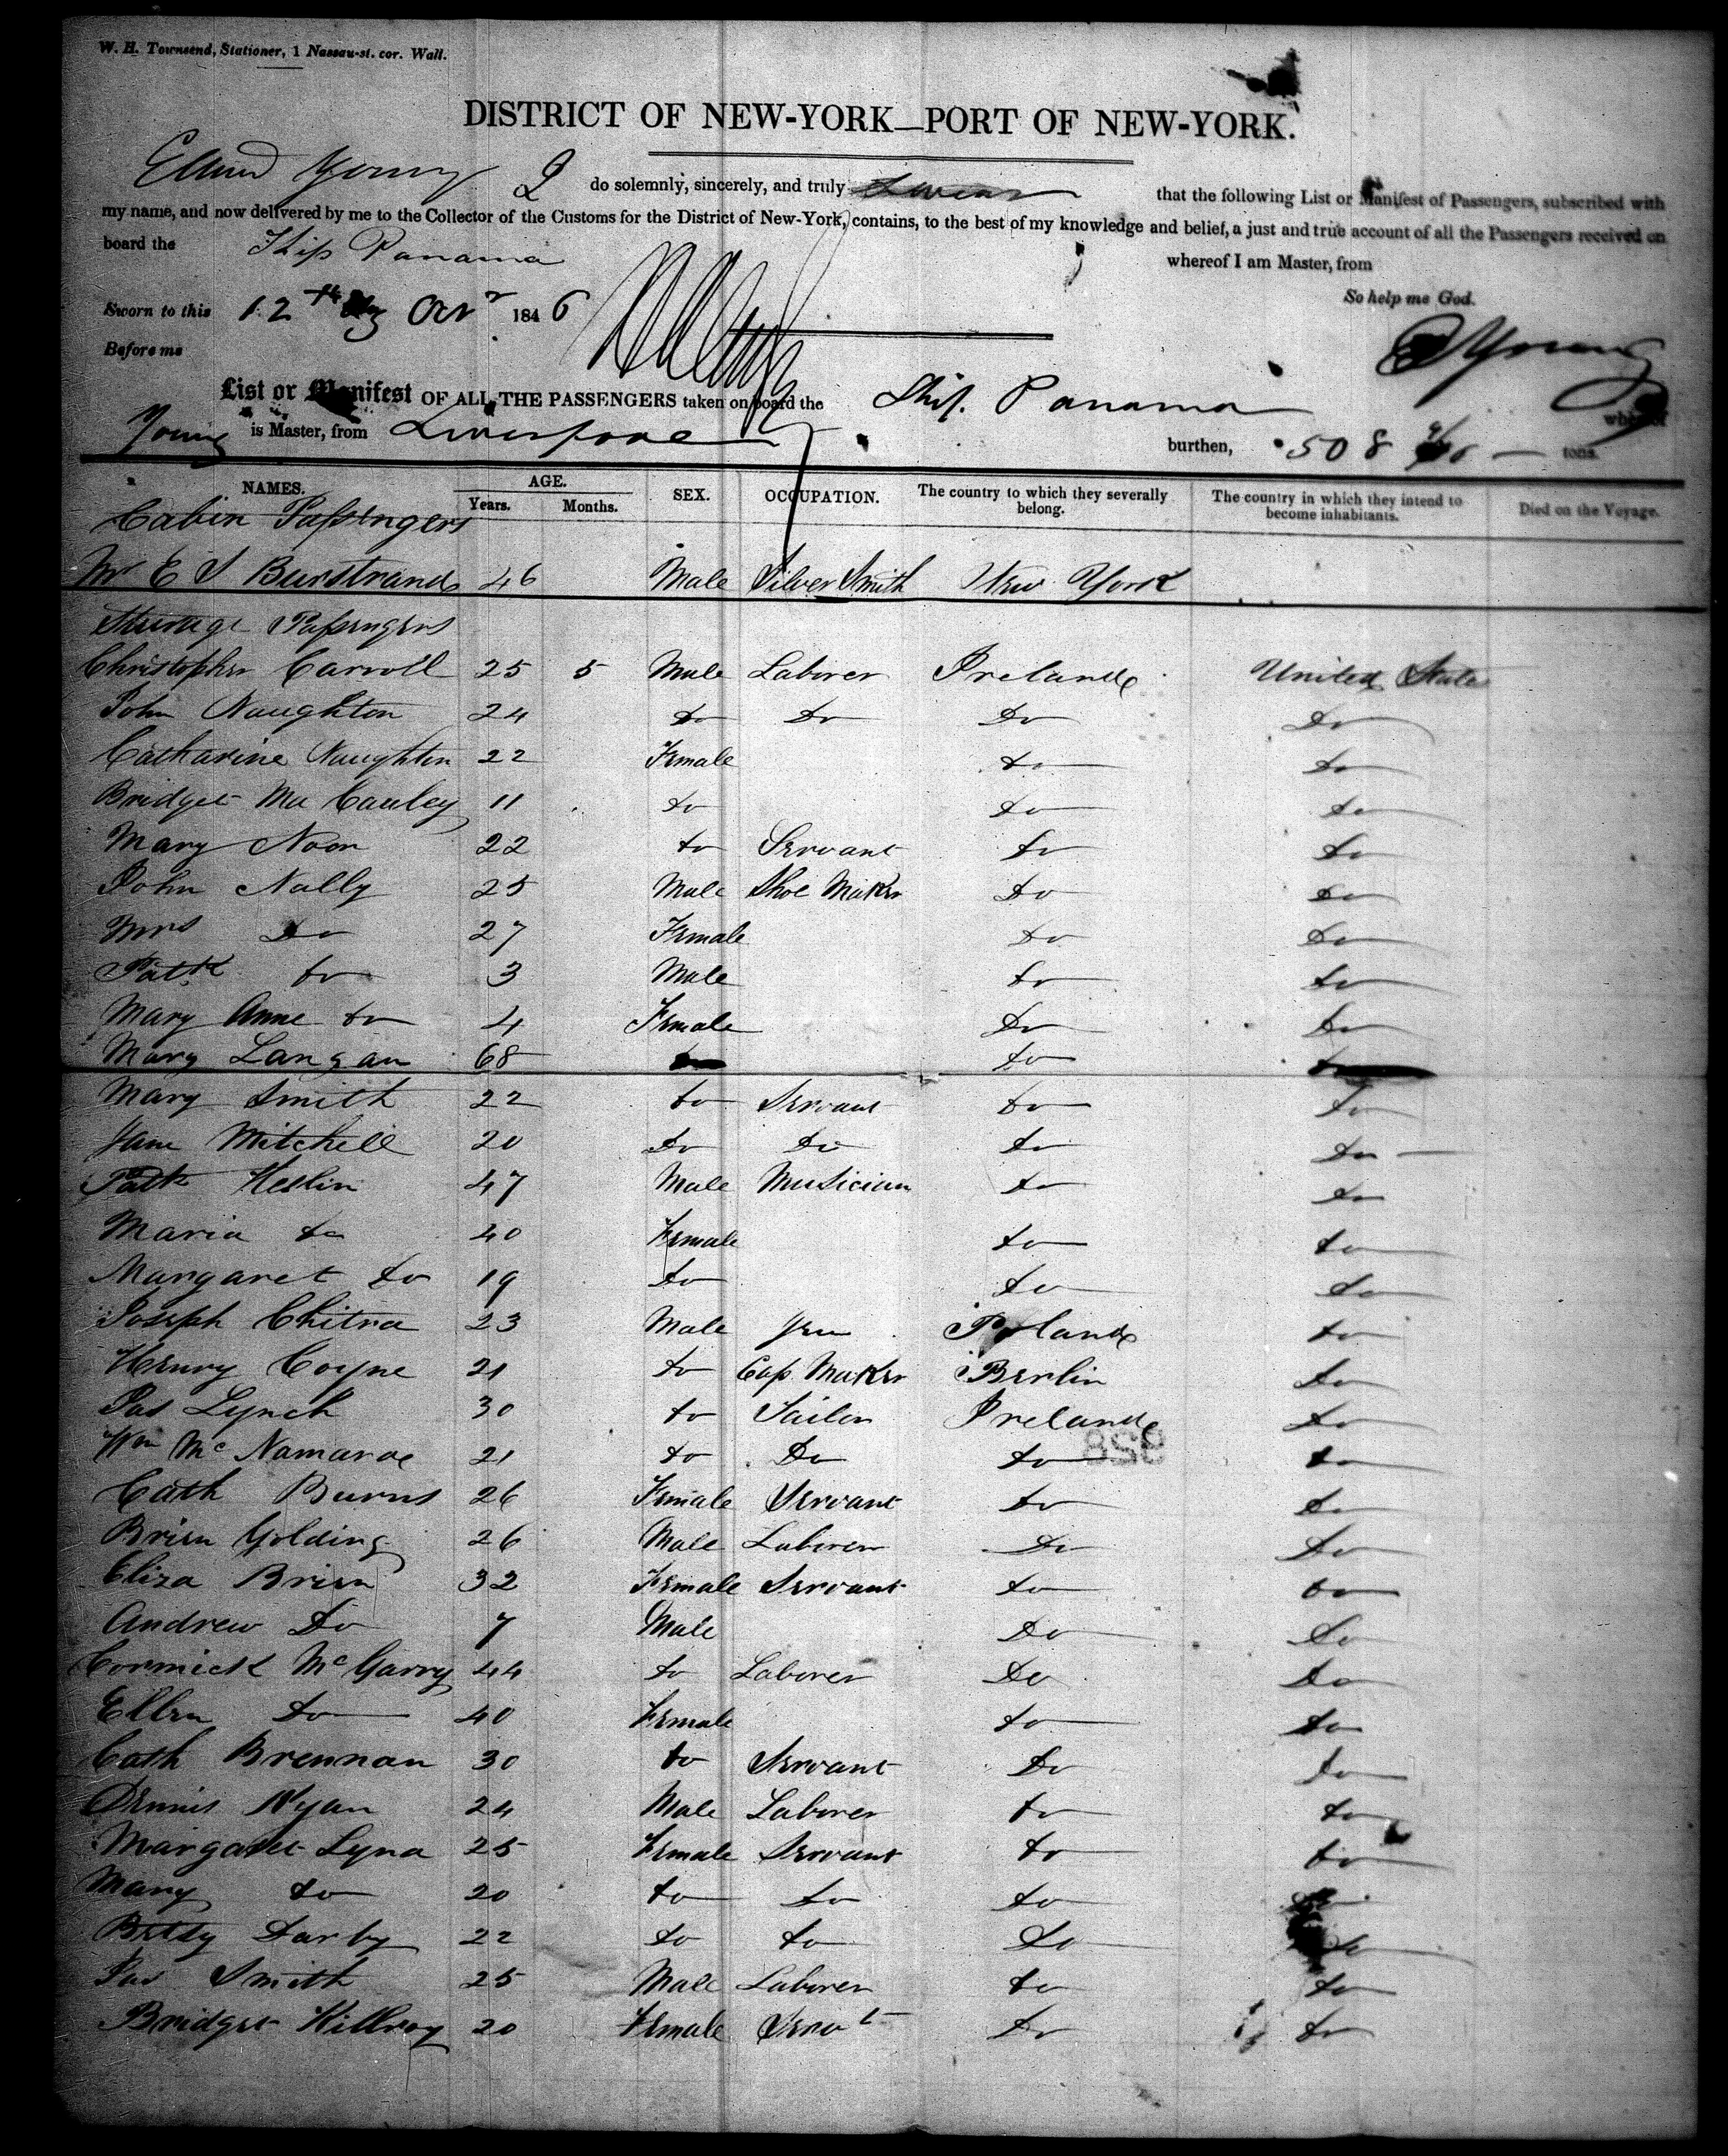 W. H. Townsend, Stationer, 1 Nassau-st. cor. Wall.
DISTRICT OF NEW-YORK—PORT OF NEW-YORK.
Young I do solemnly, sincerely, and truly Swear that the following List or Manifest of Passengers, subscribed with
my name, and now delivered by me to the Collector of the Customs for the District of New-York, contains, to the best of my knowledge and belief, a just and true account of all the Passengers received on
board the Ship Panama whereof I am Master, from
So help me God.
Sworn to this 12th 1846
Before me
E Young
List or Manifest OF ALL THE PASSENGERS taken on board the Ship Panama whereof
Young is Master, from Liverpool burthen, 508 tons.
NAMES. AGE. Years. Months. SEX. OCCUPATION. The country to which they severally belong. The country in which they intend to become inhabitants. Died on the Voyage.
Cabin Passengers
Mr E S Burstrand 46 Male Silver Smith New York
Steerage Passengers
Christopher Carroll 25 5 Male Laborer Ireland United State
John Naughton 24 Do Do Do Do
Catharine Naughton 22 Female do do
Bridget Mc Cauley 11 do do do
Mary Noon 22 do Servant do do
John Nally 25 Male Shoe Maker Do do
Mrs Do 27 Female Do Do
Patk do 3 Male do do
Mary Anne do 4 Female Do do
Mary Langan 68 do
Mary Smith 22 do Servant do do
Jane Mitchell 20 Do Do do Do
Patk Heslin 47 Male Musician do do
Maria do 40 Female do do
Margaret do 19 do do do
Joseph Chitra 23 Male Jew Poland do
Henry Coyne 21 do Cap Maker Berlin do
Jas Lynch 30 do Sailor Ireland do
Wm Mc Namarae 21 do Do do do
Cath Burns 26 Female Servant do do
Brien Golding 26 Male Laborer Do Do
Eliza Brien 32 Female Servant do do
Andrew Do 7 Male Do Do
Cormick Mc Garry 44 do Laborer Do Do
Ellen do 40 Female do do
Cath Brennan 30 do Servant Do Do
Dennis Ryan 24 Male Laborer do do
Margaret Lyna 25 Female Servant do do
Mary do 20 do do do do
Betsy Darby 22 do do Do do
Jas Smith 25 Male Laborer do do
Bridget Killroy 20 Female Servt do do